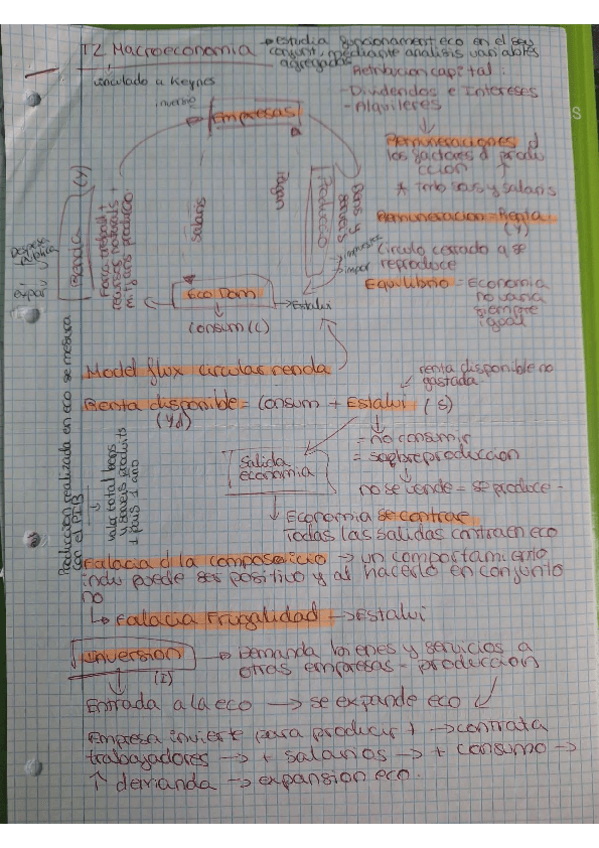 T2 Macroeconomia → estudia funcionament eco en el seu
conjunt, mediante analisis variables
agregados
vinculado a Keynes
Retribucion capital:
- Dividendos e Intereses
- Alquileres
inversio
Empresas
Remuneraciones d
los factores d produ
ccion
* Treb sous y salaris
Remuneracion = Renta
(Y)
Circulo cerrado q se
reproduce
Equilibrio = Economia
no varia
siempre
igual
Renda (Y)
Força treball +
recursos naturals +
mitjans produccio
salaris
Pagan
Produccio
Bens y
serveis
impuestos
impor
Despesa
publica
expor
Eco Dom
→ Estalvi
Consum (C)
Model flux circular renda
renta disponible no
gastada
Renta disponible = Consum + Estalvi (S)
(Yd)
- no consumir
= sobreproduccion
salida
economia
no se vende = se produce -
Economia se contrae
Todas las salidas contraen eco
Produccion realizada en eco se mesura
con el PIB
valor total bens
y serveis produits
1 pais 1 año
Falacia d la composicio → un comportamiento
indiv puede ser positivo y al hacerlo en conjunto
no
↳ Falacia Frugalidad → Estalvi
Inversion → Demanda bienes y servicios a
otras empresas - produccion
(I)
Entrada a la eco → se expande eco
Empresa invierte para producir + → contrata
trabajadores → + salarios → + consumo →
↑ demanda → expansion eco.